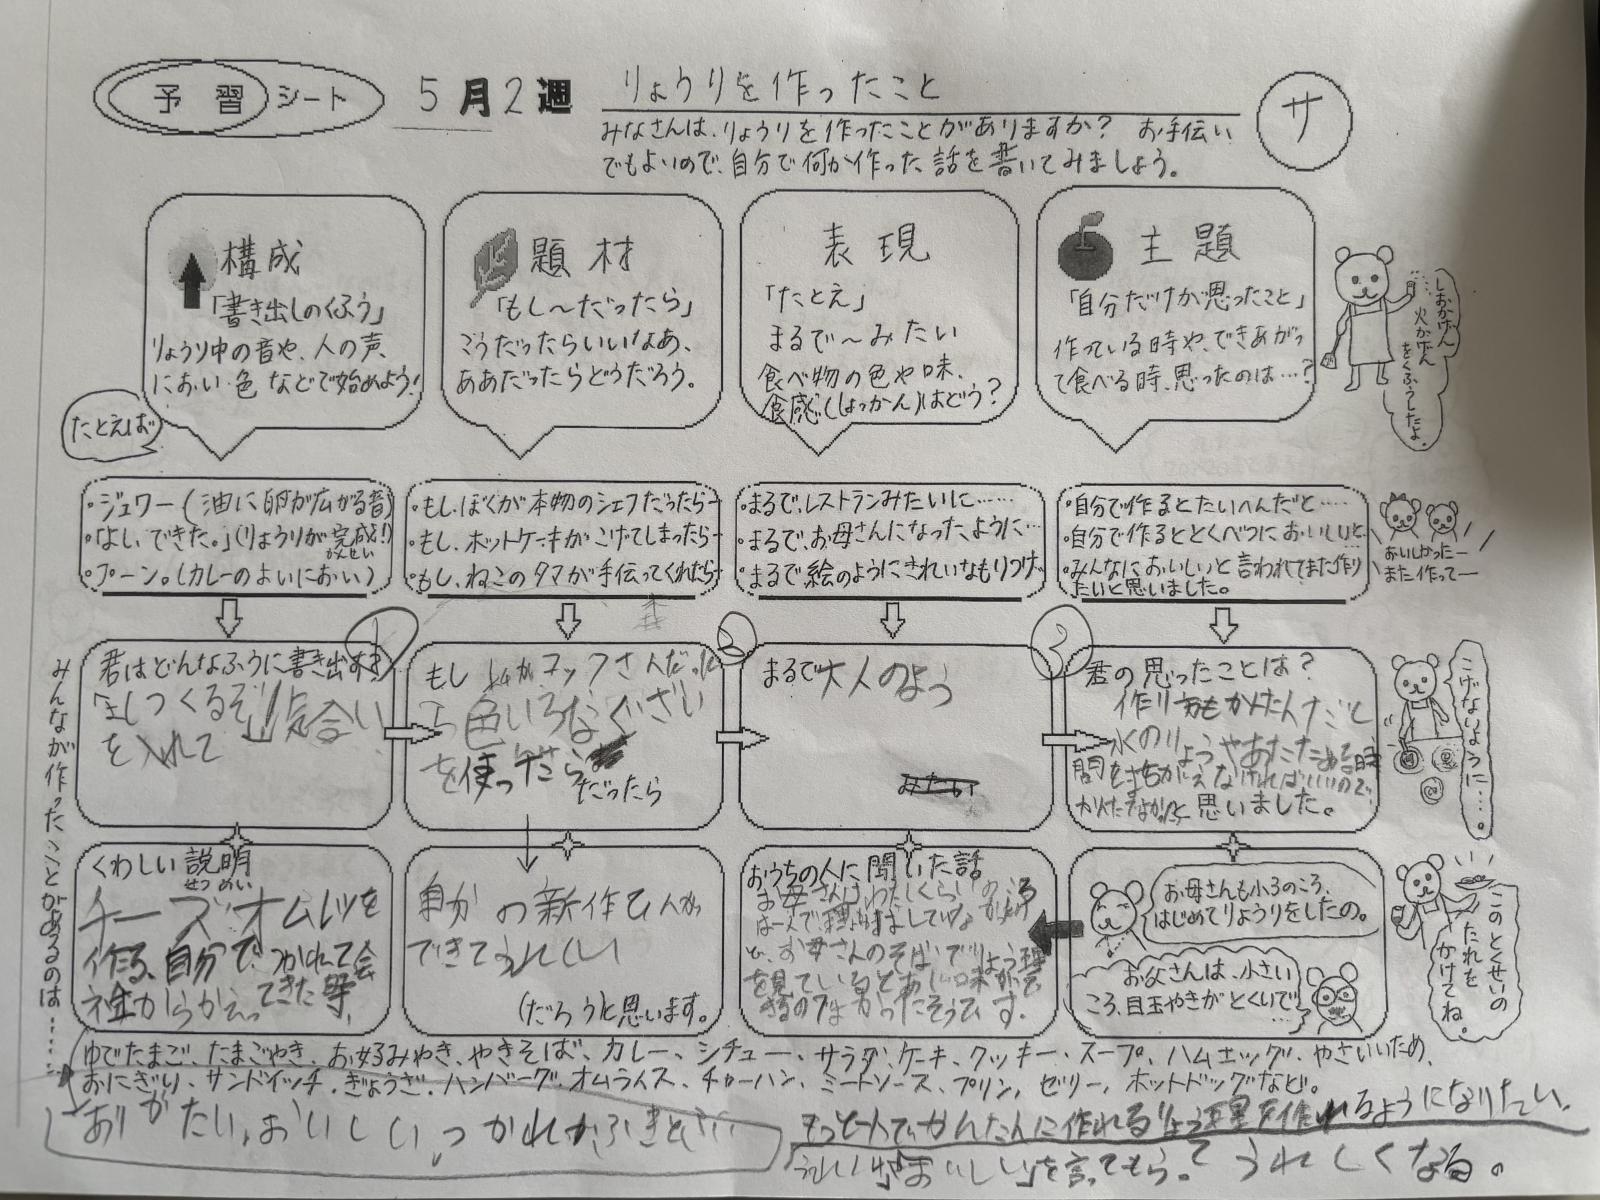 予習シート
5月2週
りょうりを作ったこと
サ
みなさんは、りょうりを作ったことがありますか? お手伝い
でもよいので、自分で何か作った話を書いてみましょう。
構成
「書き出しのくふう」
りょうり中の音や、人の声、
におい・色などで始めよう!
題材
「もし〜だったら」
こうだったらいいなあ、
ああだったらどうだろう。
表現
「たとえ」
まるで〜みたい
食べ物の色や味、
食感(しょっかん)はどう?
主題
「自分だけが思ったこと」
作っている時や、できあがっ
て食べる時、思ったのは…?
しおかげん
火かげん
をくふうしたよ。
たとえば
・ジュワー(油に卵が広がる音)
・「よし、できた。」(りょうりが完成!)
かんせい
・プーン。(カレーのよいにおい)
・もし、ぼくが本物のシェフだったらー
・もし、ホットケーキがこげてしまったらー
・もし、ねこのタマが手伝ってくれたらー
・まるで、レストランみたいに……
・まるで、お母さんになったように…
・まるで絵のようにきれいなもりつけ
・自分で作るとたいへんだと…
・自分で作るととくべつにおいしいと
・みんなにおいしいと言われてまた作り
たいと思いました。
おいしかったー
また作ってー
1
君はどんなふうに書き出す?
「よしつくるぞ」気合い
を入れて
2
もし コックさんだった
ら色いろなぐざい
を使ったら
だったら
3
まるで大人のよう
君の思ったことは?
作り方もかんたんだし
水のりょうやあたためる時
間をまちがえなければいいので、
と思いました。
こげないように…。
くわしい説明
せつめい
チーズオムレツを
作る、自分で、つかれて会
社からかえってきた時、
自分の新作
できてうれしい
(だろう)と思います。
おうちの人に聞いた話
お母さんは
お母さんのそばでりょう理
を見ていると
そうです。
お母さんも小3のころ、
はじめてりょうりをしたの。
お父さんは、小さい
ころ、目玉やきがとくいで
…
このとくせいの
たれを
かけてね。
みんなが作ったことがあるのは……
ゆでたまご、たまごやき、お好みやき、やきそば、カレー、シチュー、サラダ、ケーキ、クッキー、スープ、ハムエッグ、やさいいため、
おにぎり、サンドイッチ、ぎょうざ、ハンバーグ、オムライス、チャーハン、ミートソース、プリン、ゼリー、ホットドッグなど。
ありがたい、おいしい、つかれが
もっと一人でかんたんに作れるりょう理を作れるようになりたい。
うれしい「おいしい」を言ってもらってうれしくなる。